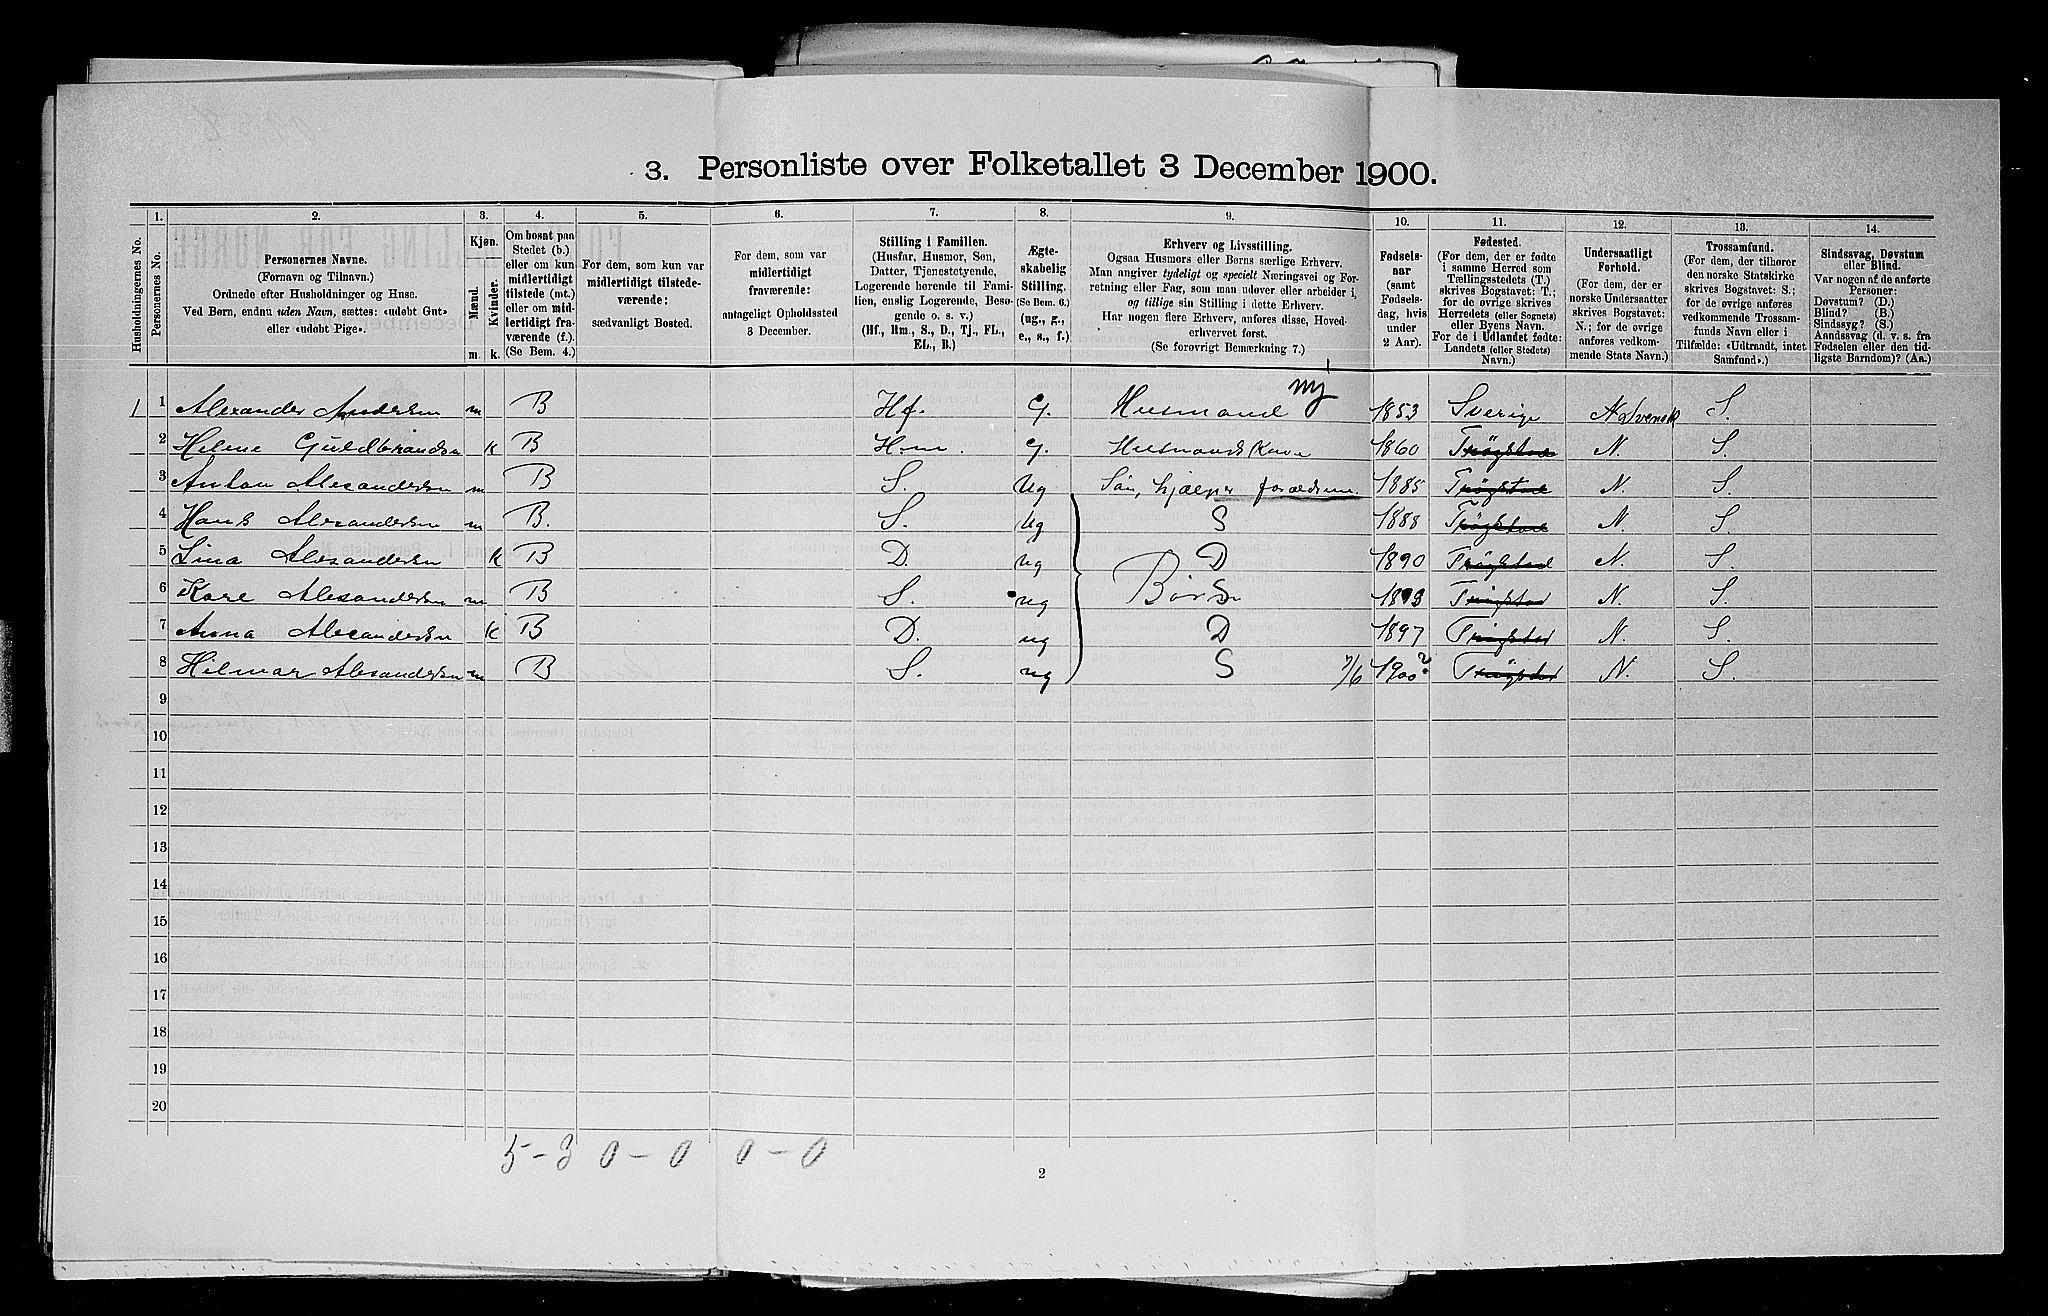 3. Personliste over Folketallet 3 December 1900.
Husholdningernes No.
1.
Personernes No.
2.
Personernes Navne.
(Fornavn og Tilnavn.)
Ordnede efter Husholdninger og Huse.
Ved Børn, endnu uden Navn, sættes: «udøbt Gut»
eller «udøbt Pige».
3.
Kjøn.
Mænd.
Kvinder.
m. k.
4.
Om bosat paa
Stedet (b.)
eller om kun
midlertidigt
tilstede (mt.)
eller om mid-
lertidigt fra-
værende (f.).
(Se Bem. 4.)
5.
For dem, som kun var
midlertidigt tilstede-
værende:
sædvanligt Bosted.
6.
For dem, som var
midlertidigt
fraværende:
antageligt Opholdssted
3 December.
7.
Stilling i Familien.
(Husfar, Husmor, Søn,
Datter, Tjenestetyende,
Logerende hørende til Fami-
lien, enslig Logerende, Besø-
gende o. s. v.)
(Hf., Hm., S., D., Tj., FL.,
EL., B.)
8.
Ægte-
skabelig
Stilling.
(Se Bem. 6.)
(ug., g.,
e., s., f.)
9.
Erhverv og Livsstilling.
Ogsaa Husmors eller Børns særlige Erhverv.
Man angiver tydeligt og specielt Næringsvei og For-
retning eller Fag, som man udøver eller arbeider i,
og tillige sin Stilling i dette Erhverv.
Har nogen flere Erhverv, anføres disse, Hoved-
erhvervet først.
(Se forøvrigt Bemærkning 7.)
10.
Fødsels-
aar
(samt
Fødsels-
dag, hvis
under
2 Aar).
11.
Fødested.
(For dem, der er fødte
i samme Herred som
Tællingsstedet (T.)
skrives Bogstavet: T.;
for de øvrige skrives
Herredets (eller Sognets)
eller Byens Navn.
For de i Udlandet fødte:
Landets (eller Stedets)
Navn.)
12.
Undersaatligt
Forhold.
(For dem, der er
norske Undersaatter
skrives Bogstavet:
N.; for de øvrige
anføres vedkom-
mende Stats Navn.)
13.
Trossamfund.
(For dem, der tilhører
den norske Statskirke
skrives Bogstavet: S.;
for de øvrige anføres
vedkommende Trossam-
funds Navn eller i
Tilfælde: «Udtraadt, intet
Samfund».)
14.
Sindssvag, Døvstum
eller Blind.
Var nogen af de anførte
Personer:
Døvstum? (D.)
Blind? (B.)
Sindssyg? (S.)
Aandssvag (d. v. s. fra
Fødselen eller den tid-
ligste Barndom)? (Aa.)
1 1 Alexander Andersen m B Hf. G. Husmand 1853 Sverige N Svensk S.
2 Helene Guldbrandsen k B Hm. G. Husmands Kone 1860 Trøgstad N. S.
3 Anton Alexandersen m B S. Ug Søn, hjælper forældrene. 1885 Trøgstad N. S.
4 Hans Alexandersen m B. S. Ug S 1888 Trøgstad N. S
5 Lina Alexandersen K B D. ug D 1890 Trøgstad N. S.
6 Kare Alexandersen m B S. ug Børn S 1893 Trøgstad N. S.
7 Anna Alexandersen K B D. ug D 1897 Trøgstad N. S.
8 Hilmar Alexandersen m B S. ug S 7/6 1900? Trøgstad N. S.
9
10
11
12
13
14
15
16
17
18
19
20
5 - 3 0 - 0 0 - 0
2